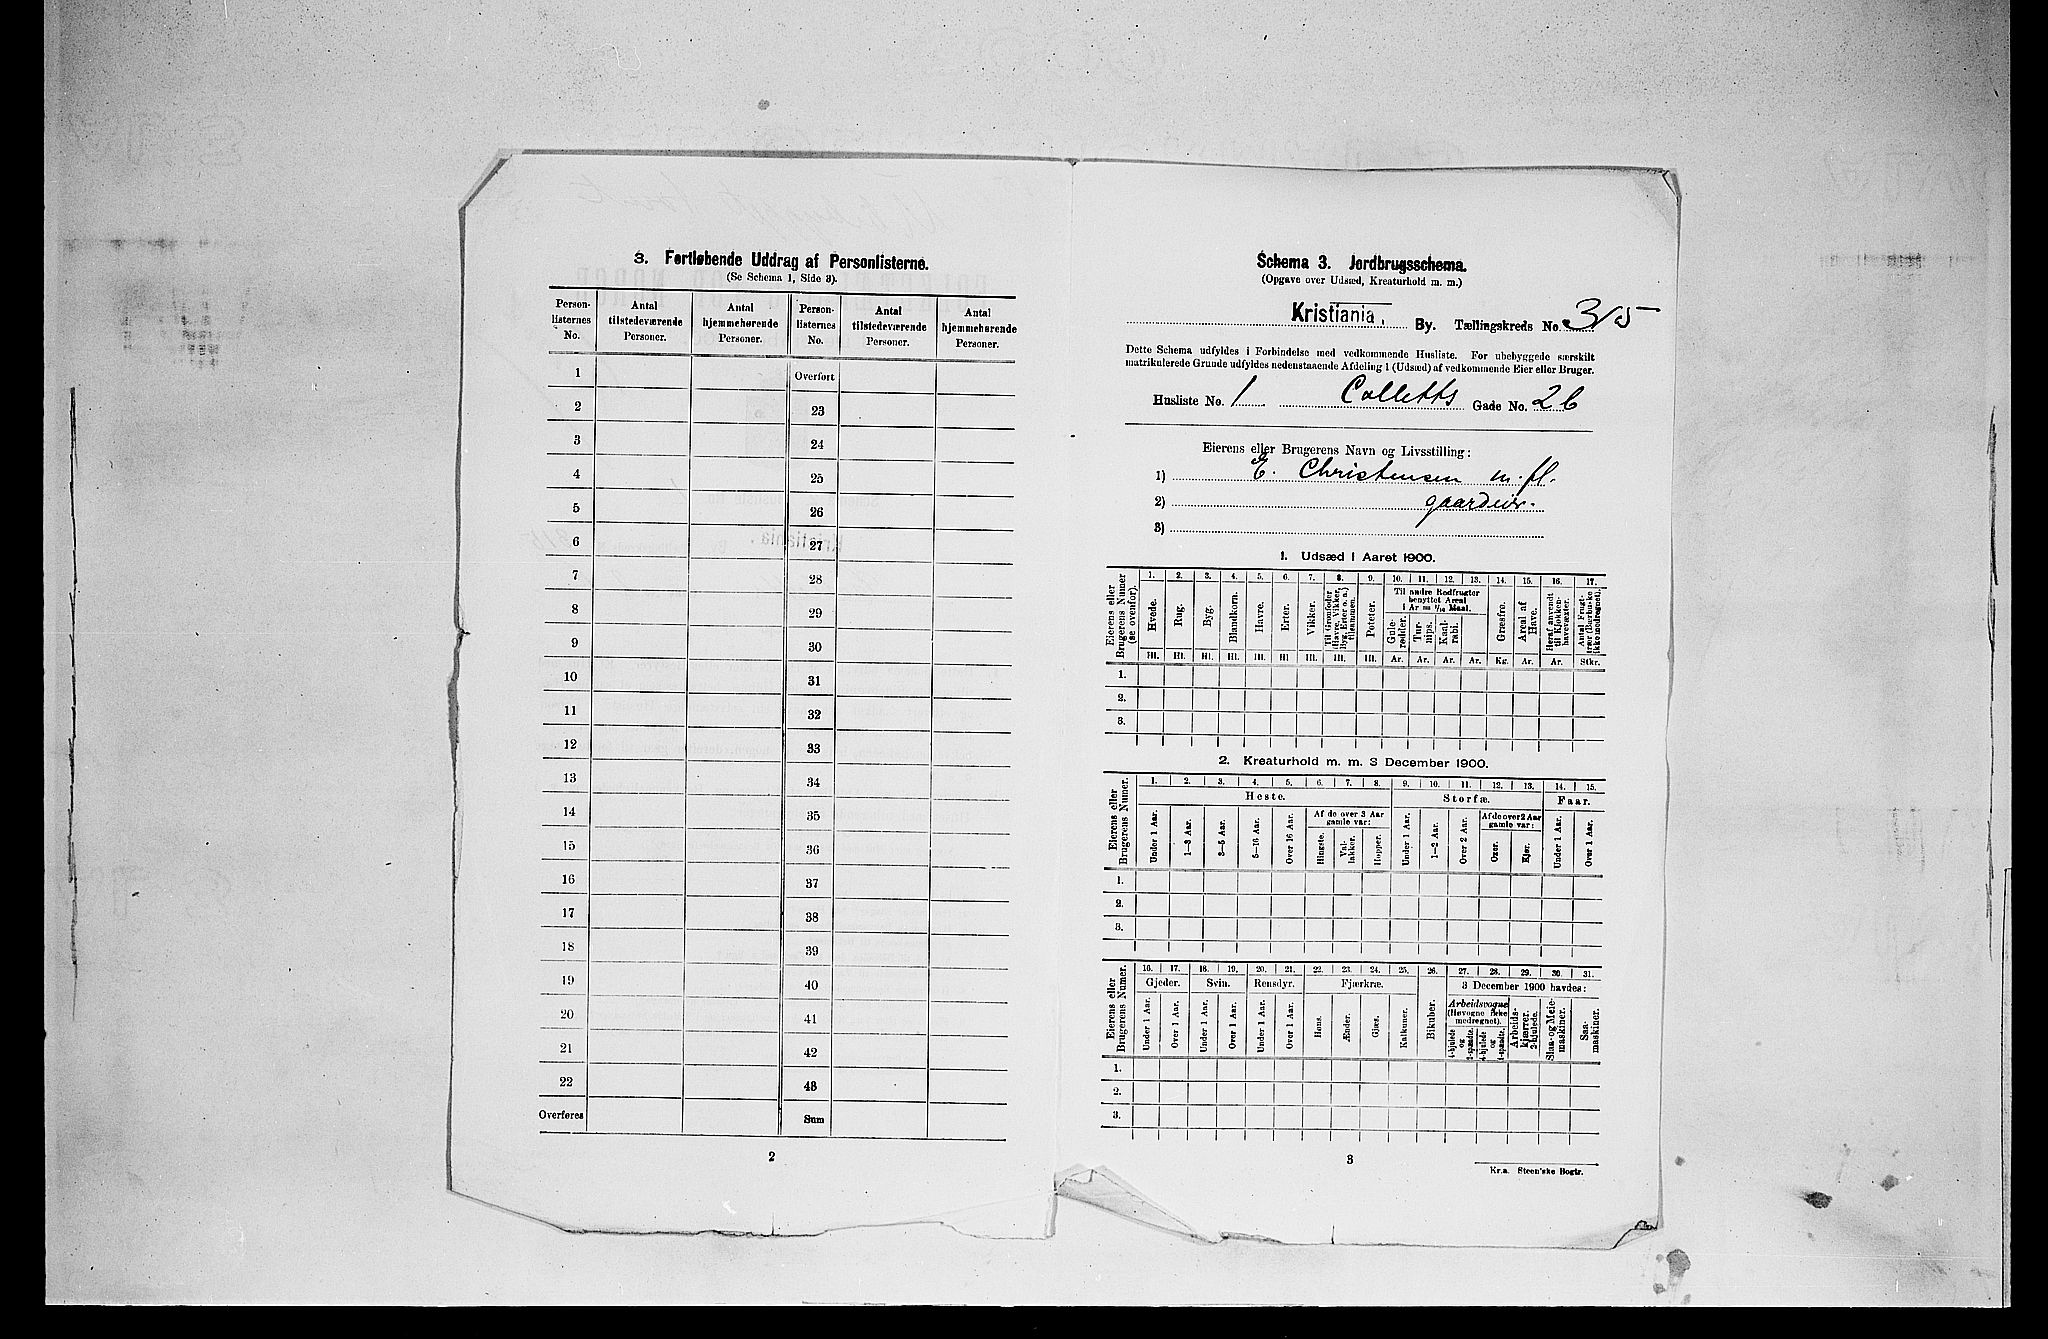 3. Fortløbende Uddrag af Personlisterne.
(Se Schema 1, Side 3).
Person-listernes No. | Antal tilstedeværende Personer. | Antal hjemmehørende Personer. | Person-listernes No. | Antal tilstedeværende Personer. | Antal hjemmehørende Personer.
1 | Overført
2 | 23
3 | 24
4 | 25
5 | 26
6 | 27
7 | 28
8 | 29
9 | 30
10 | 31
11 | 32
12 | 33
13 | 34
14 | 35
15 | 36
16 | 37
17 | 38
18 | 39
19 | 40
20 | 41
21 | 42
22 | 43
Overføres | Sum
2
Schema 3. Jordbrugsschema.
(Opgave over Udsæd, Kreaturhold m. m.)
Kristiania. By. Tællingskreds No. 315
Dette Schema udfyldes i Forbindelse med vedkommende Husliste. For ubebyggede særskilt
matrikulerede Grunde udfyldes nedenstaaende Afdeling 1 (Udsæd) af vedkommende Eier eller Bruger.
Husliste No. 1 Colletts Gade No. 2b
Eierens eller Brugerens Navn og Livsstilling:
1) E. Christensen m. fl.
2) gaardeier.
3)
1. Udsæd i Aaret 1900.
Eierens eller Brugerens Numer (se ovenfor).
1. 2. 3. 4. 5. 6. 7. 8. 9. 10. 11. 12. 13. 14. 15. 16. 17.
Hvede. Rug. Byg. Blandkorn. Havre. Erter. Vikker. Til Grønfoder (Havre, Vikker, Byg, Erter o. a.) tilsammen. Poteter.
Til andre Rodfrugter benyttet Areal i Ar = 1/10 Maal.
Gule-rødder. Tur-nips. Kaal-rabi. Græsfrø. Areal af Have. Heraf anvendt til Kjøkken-havevæxter. Antal Frugt-trær (Buskene ikke medregnet).
Hl. Hl. Hl. Hl. Hl. Hl. Hl. Hl. Hl. Ar. Ar. Ar. Ar. Kg. Ar. Ar. Stkr.
1.
2.
3.
2. Kreaturhold m. m. 3 December 1900.
Eierens eller Brugerens Numer.
1. 2. 3. 4. 5. 6. 7. 8. 9. 10. 11. 12. 13. 14. 15.
Heste. Storfæ. Faar.
Af de over 3 Aar gamle var: Af de over 2 Aar gamle var:
Under 1 Aar. 1—3 Aar. 3—5 Aar. 5—16 Aar. Over 16 Aar. Hingste. Val-lakker. Hopper. Under 1 Aar. 1—2 Aar. Over 2 Aar. Oxer. Kjør. Under 1 Aar. Over 1 Aar.
1.
2.
3.
Eierens eller Brugerens Numer.
16. 17. 18. 19. 20. 21. 22. 23. 24. 25. 26. 27. 28. 29. 30. 31.
Gjeder. Svin. Rensdyr. Fjærkræ. 3 December 1900 havdes:
Under 1 Aar. Over 1 Aar. Under 1 Aar. Over 1 Aar. Under 1 Aar. Over 1 Aar. Høns. Ænder. Gjæs. Kalkuner. Bikuber.
Arbeidsvogne (Høvogne ikke medregnet).
4-hjulede og 2-spændte. 4-hjulede og 1-spændte. Arbeids-kjærrer, 2-hjulede. Slaa- og Meie-maskiner. Saa-maskiner.
1.
2.
3.
3
Kr.a. Steen'ske Bogtr.